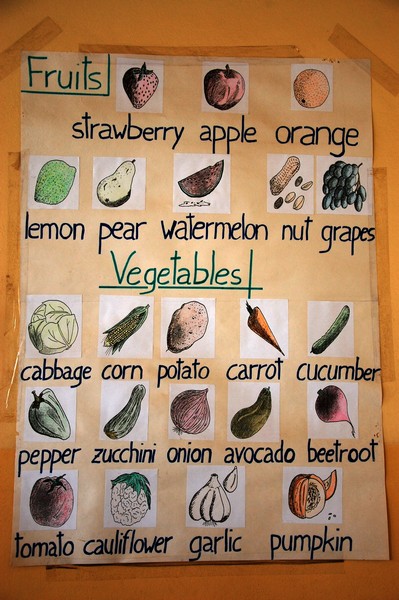 Fruits
strawberry apple orange
lemon pear watermelon nut grapes
Vegetables
cabbage corn potato carrot cucumber
pepper zucchini onion avocado beetroot
tomato cauliflower garlic pumpkin